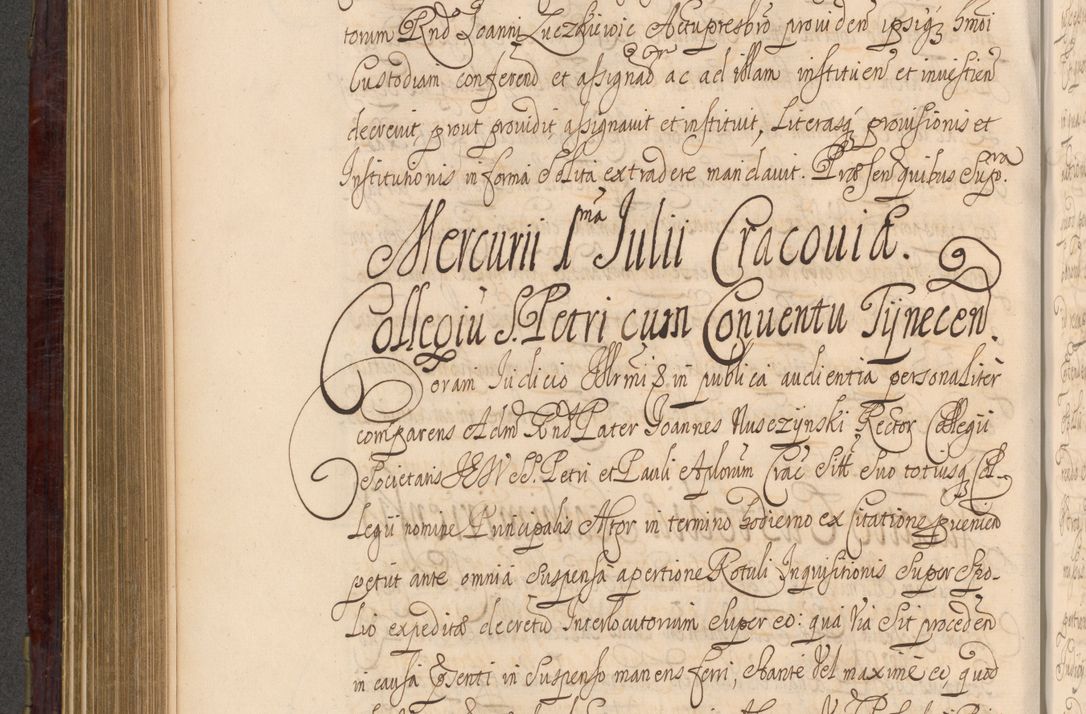 torum Rnd Joanni Zuczkiewic Actupresbro providen ipsiq3 hmoi
Custodiam conferend et assignad ac ad illam instituen et investien
decrevit, prout providit assignavit et instituit, Literasq provisionis et
Institutionis in forma solita extradere mandavit. Præsen quibus Supra.
Mercurii 1ma Julii Cracoviæ.
Collegiū S. Petri cum Conventu Tÿnecen.
Coram Judicio Illrmi & in publica audientia personaliter
comparens Adm Rnd Pater Joannes Rusczÿnski Rector Collegii
Societatis JESV SS. Petri et Pauli Aplorum Crac Sitt Suo totiusq Col-
legii nomine Principalis Actor in termino hodierno ex Citatione pvenien
petiit ante omnia Suspensa apertione Rotuli Inquisitionis Super Spo-
lio expeditæ decretū Interlocutorium Super eo: qua via Sit proceden
in causa Psenti in Suspenso manens ferri, Stante vel maxime eo, quod